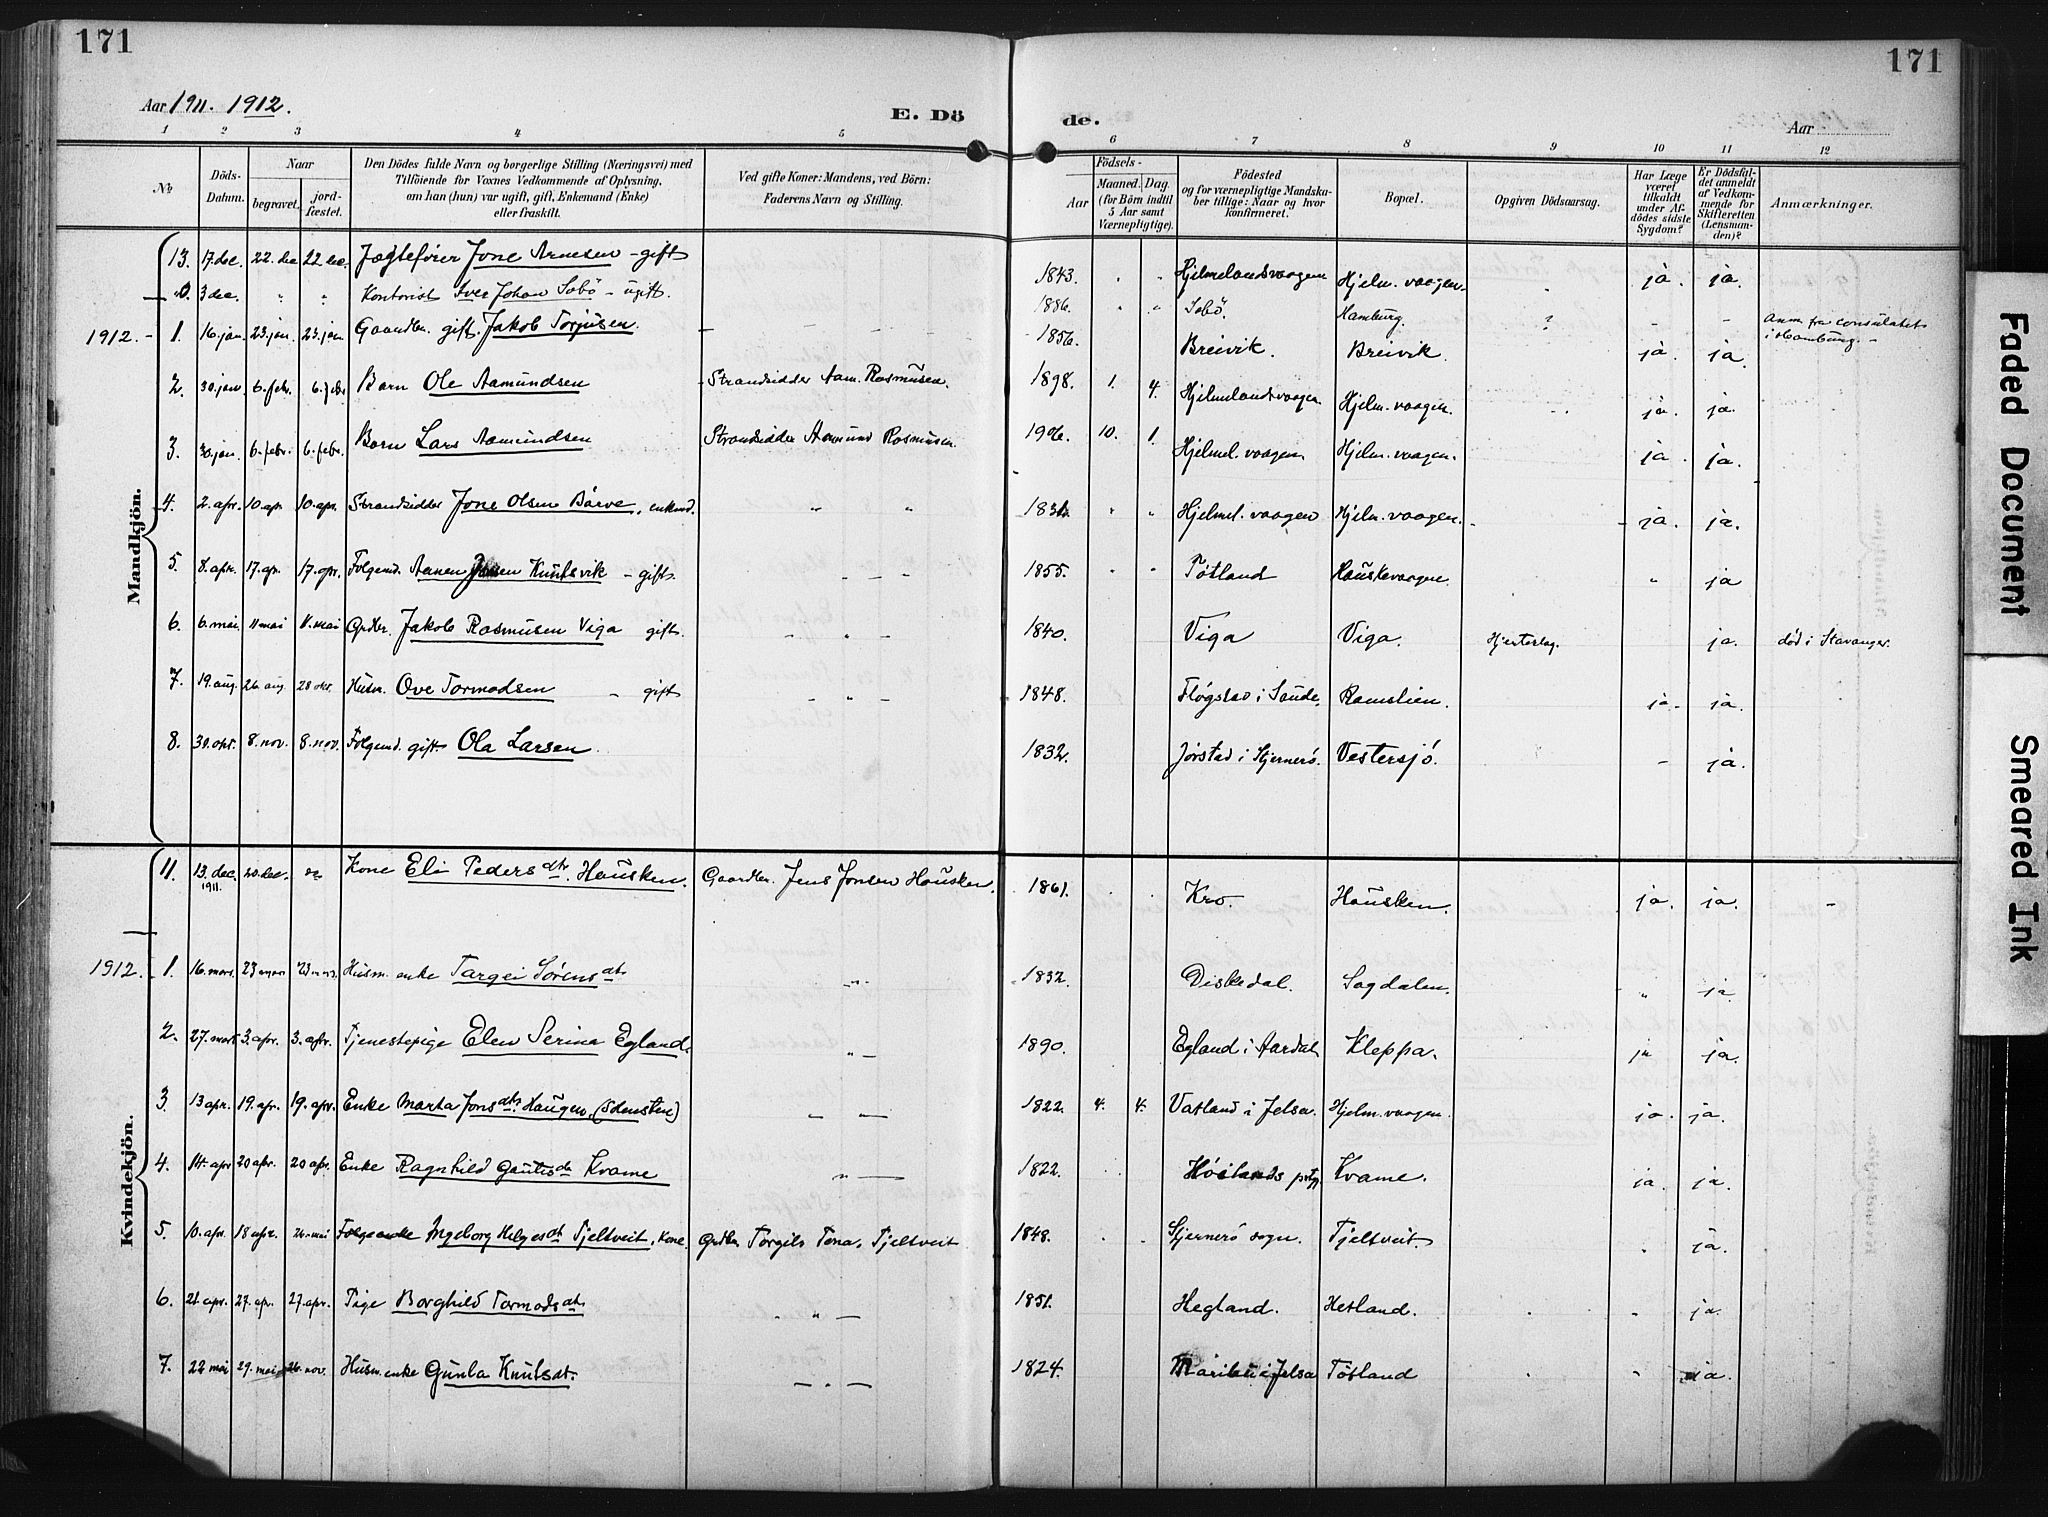 171
171
Aar 1911. 1912.
E. Dö de.
Aar
1 2 3 4 5 6 7 8 9 10 11 12
No
Döds-Datum.
Naar
begravet.
jord-fæstet.
Den Dödes fulde Navn og borgerlige Stilling (Næringsvei) med
Tilföiende for Voxnes Vedkommende af Oplysning,
om han (hun) var ugift, gift, Enkemand (Enke)
eller fraskilt.
Ved gifte Koner: Mandens, ved Börn:
Faderens Navn og Stilling.
Födsels-
Aar
Maaned. Dag
(for Börn indtil
5 Aar samt
Værnepligtige).
Födested
og for værnepligtige Mandska-
ber tillige: Naar og hvor
konfirmeret.
Bopæl.
Opgiven Dödsaarsag.
Har Læge
været
tilkaldt
under Af-
dödes sidste
Sygdom?
Er Dödsfal-
det anmeldt
af Vedkom-
mende for
Skifteretten
(Lensman-
den)?
Anmærkninger.
Mandkjön.
13. 17. dec. 22. dec 22 dec. Jægtefører Jone Arnesen - gift 1843. Hjelmelandsvaagen Hjelm. vaagen. ja. ja.
3 dec. " " Kontorist Iver Johan Sobö - ugift. 1886. Sobö. Hamburg. ? - - Anm. fra consulatet
i Hamburg. -
1912. - 1. 16. jan. 23. jan. 23. jan. Gaardbr. gift. Jakob Torjusen. - - - - 1856. Breivik. Breivik. ja. ja.
2. 30. jan. 6. febr. 6. febr Barn Ole Aamundsen - Strandsidder Aam. Rasmusen. 1898. 1. 4. Hjelmelandsvaagen. Hjelm. vaagen. ja. ja.
3. 30. jan. 6. febr. 6. febr. Barn Lars Aamundsen Strandsidder Aamund Rasmusen. 1906. 10. 1. Hjelmel. vaagen Hjelm. vaagen. ja. ja.
4. 2. apr. 10. apr. 10. apr. Strandsidder Jone Olsen Børve, enkmd. " " Hjelmel. vaagen Hjelm. vaagen. - ja. ja.
5. 8. apr. 17. apr. 17. apr. Folgemd. Aanen Jonsen Knutsvik - gift. - - 1855. Tøtland Hauskevaagen. " ja
6. 6. mai. 11. mai 11. mai Grdbr. Jakob Rasmusen Viga gift. - " - 1840. Viga Viga. Hjerteslag. ja. død i Stavanger.
7. 19. aug. 26. aug. 28 okt. Husm. Ove Tormodsen - gift - " - 1848. Fløgstad i Saude. Ramslien. ja. ja.
8. 30. okt. 8. nov. 8. nov. Folgemd. gift Ola Larsen. 1832. Jørstad i Stjernerö. Vestersjö. - ja.
Kvindekjön.
11. 13. dec. 1911. 20. dec. Kone Eli Pedersdtr. Hausken. Gaardbr. Jens Jonsen Hausken. 1861. Kro. Hausken. ja. ja. -
1912. - 1. 16. mars. 23 mars 23 mars. Husm. enke Targei Sørensdt. - " - 1832. Diskedal. Sagdalen. " ja.
2. 27. mars 3. apr. 3. apr. Tjenestepige Elen Serina Egland. " - 1890. Egland i Aardal Kleppa. ja ja.
3. 13 apr. 19. apr. 19. apr. Enke Marta Jonsdtr. Haugen. " - 1822. 4. 4. Vatland i Jelsa. Hjelm. vaagen. ja. ja.
4. 14. apr 20 apr. 20 apr. Enke Ragnhild Gautesdt. Kvame " - 1822. Høilands prstgj. Kvame. ja. ja.
5. 10. apr. 18 apr. 26. mai Folgeenke Ingeborg Helgesdt. Tjeltveit, Kone. Grdbr. Torgils Tona. Tjeltveit 1848. Stjernerö sogn. Tjeltveit. ja.
6. 21. apr. 27. apr. 27. apr. Pige Borghild Tormodsdt. " - 1851. Hegland. Hetland. - ja.
7. 22 mai 29. mai 26. nov. Husm. enke Gunla Knutsdt. - " - 1824. i Jelsa Tøtland - ja.
Faded Document
Smeared Ink